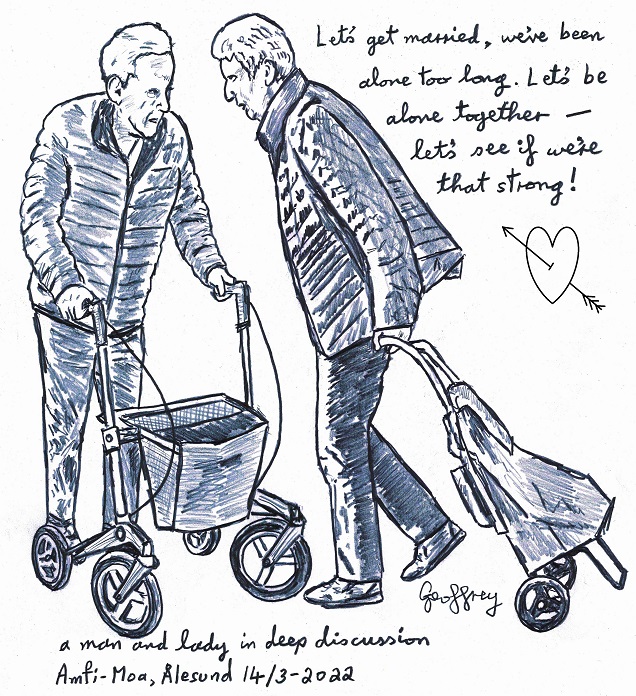 Let's get married, we've been
alone too long. Let's be
alone together —
let's see if we're
that strong!
Geoffrey
a man and lady in deep discussion
Amfi-Moa, Ålesund 14/3-2022